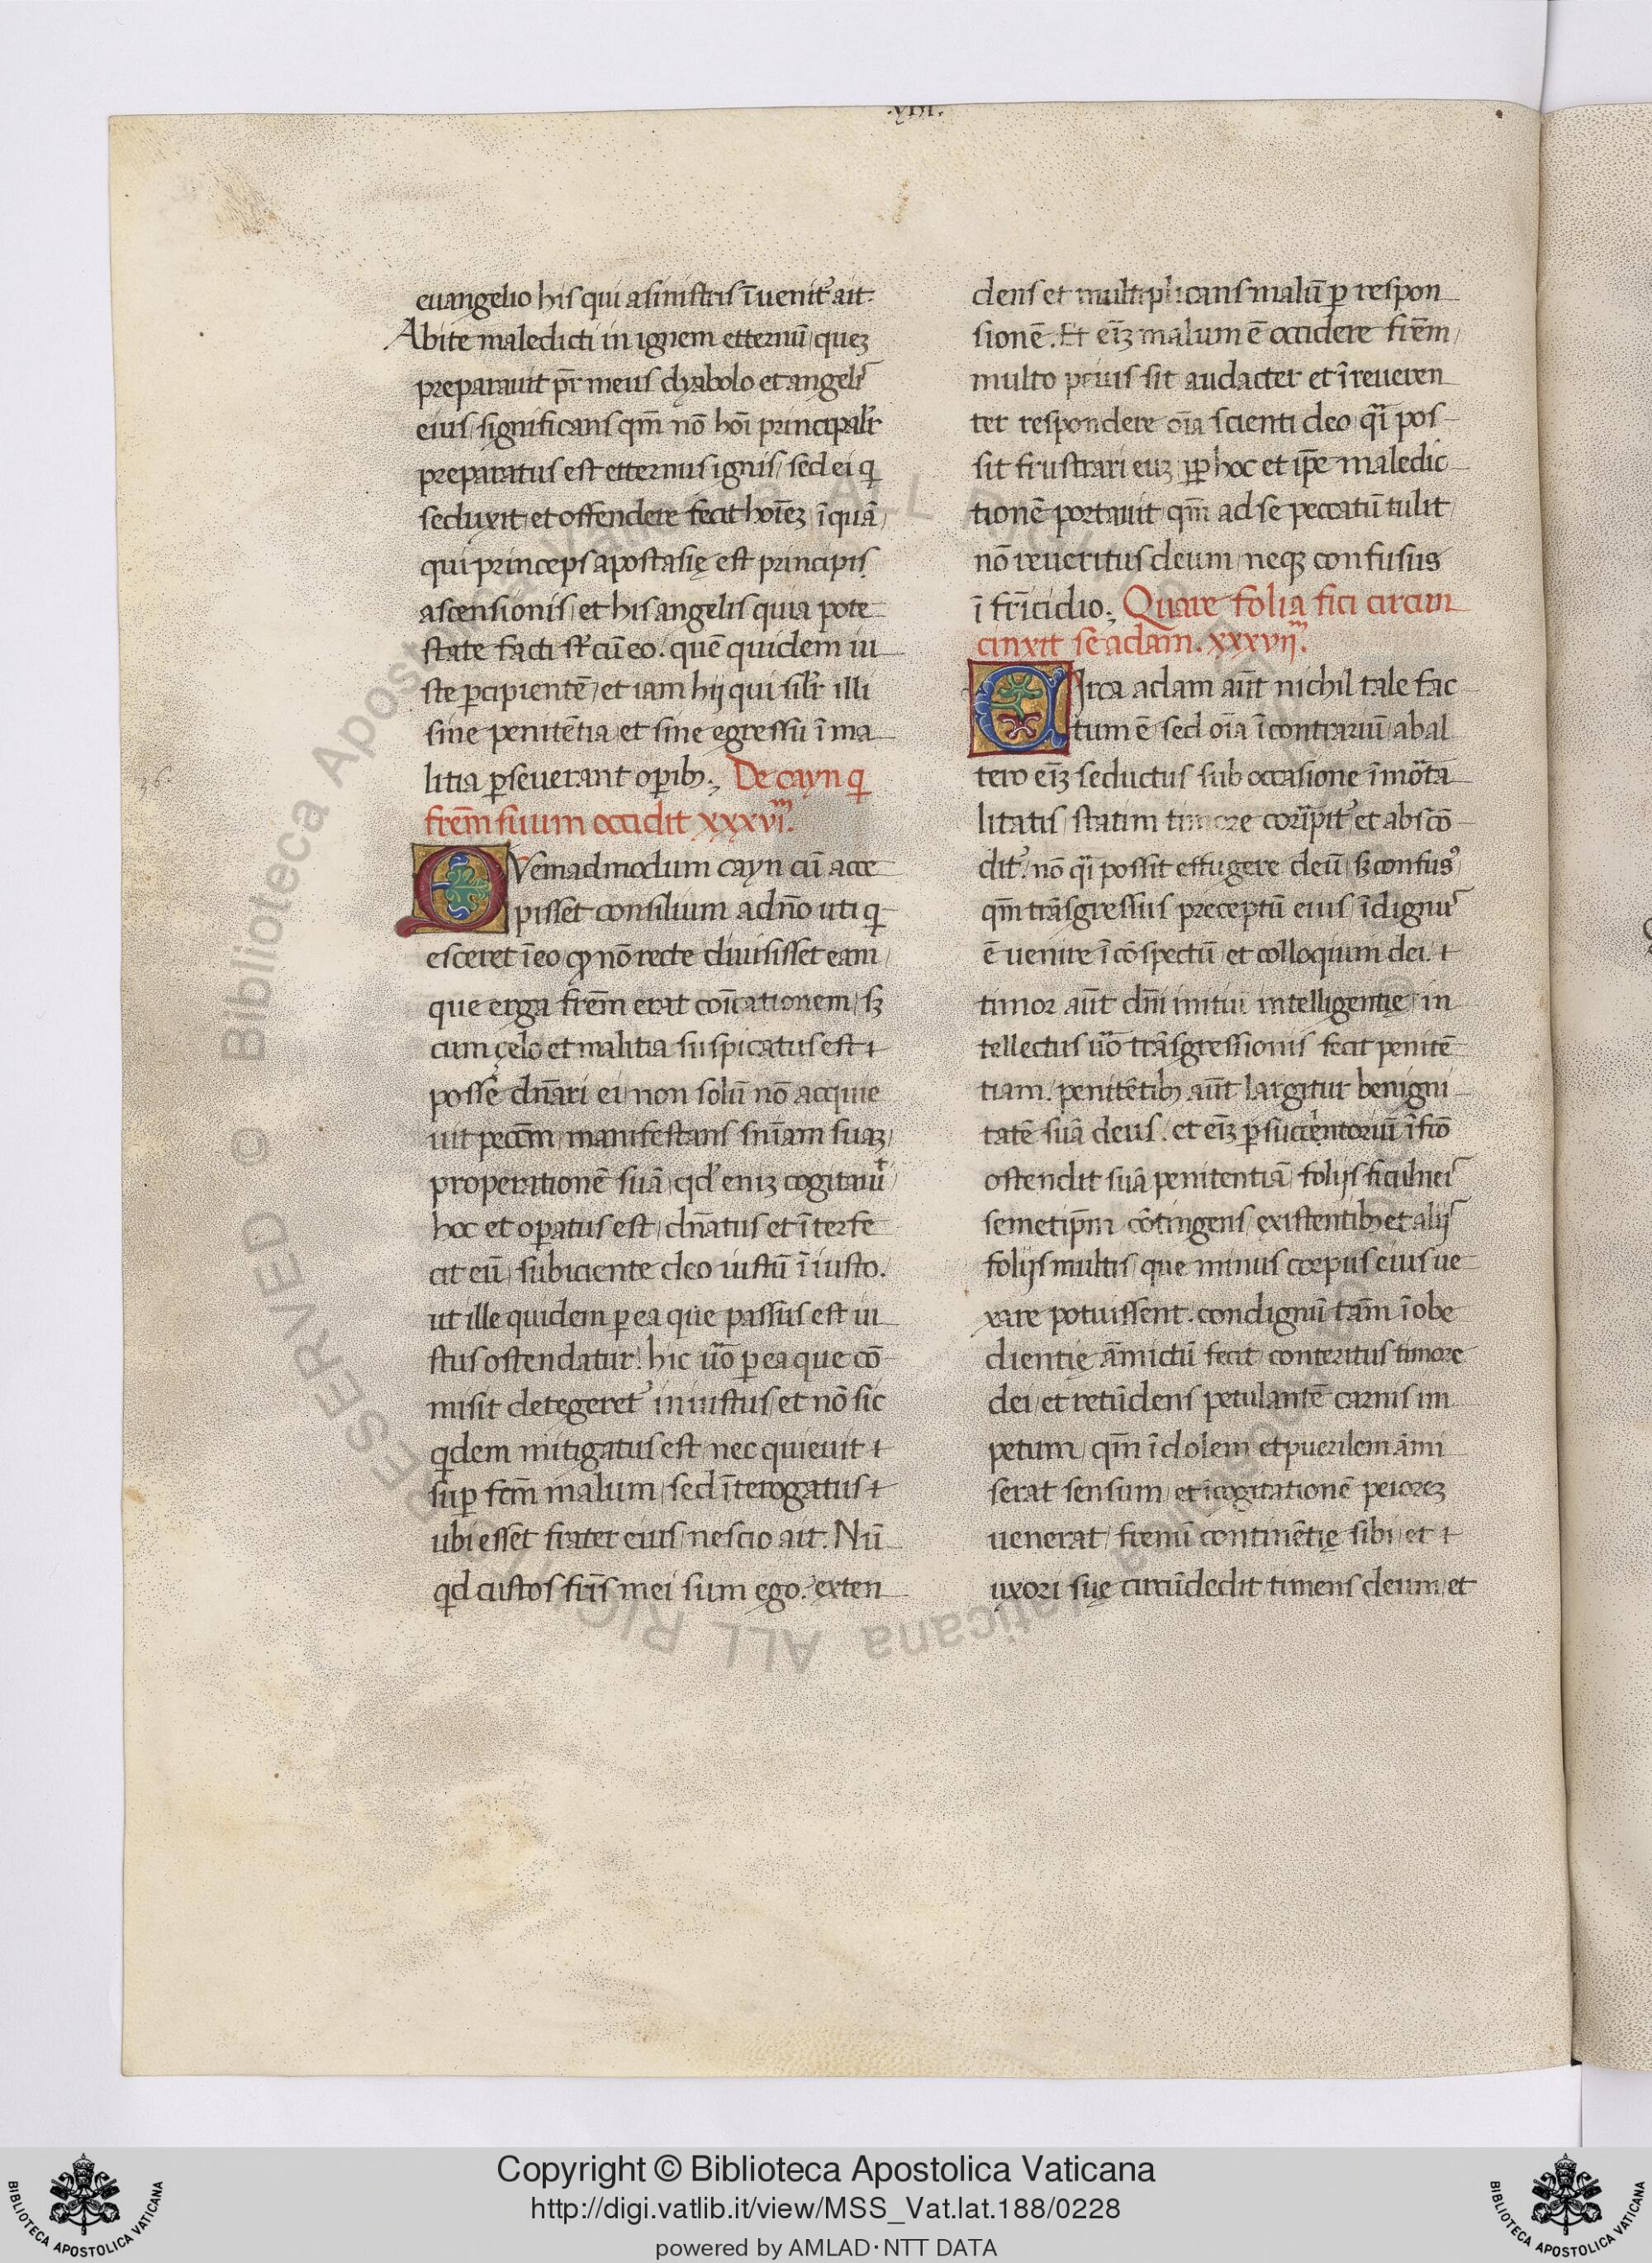 .viii.
euangelio his qui a sinistris īuenit᷑ ait.
Abite maledicti in ignem etternū quez
preparauit pr̄ meus dyabolo et angelis
eius significans qm̄ nō hoī principalr̄
preparatus est etternus ignis sed ei q
seduxit et offendere fecit hoīez īquā
qui princeps apostasię est principis
ascensionis et his angelis quia pote
state facti st̄ cū eo. quē quidem iu
ste ꝑcipientē et iam hij qui silr̄ illi
sine penitētia et sine egressu ī ma
litia ꝑseuerant oꝑibꝫ. De cayn q
frēm suum occidit xxxvi.
Quemadmodum cayn cū acce
pisset consilium a dn̄o uti q
esceret ī eo ꝙ nō recte diuisisset eam
que erga frēm erat coīcationem sꝫ
cum çelo et malitia suspicatus est
posse dn̄ari ei non solū nō acquie
uit pecc̄m manifestans sn̄iam suaꝫ
properationē suā qd' eniꝫ cogitauit
hoc et oꝑatus est dn̄atus et īterfe
cit eū subiciente deo iustū ī iusto.
ut ille quidem ꝑ ea que passus est iu
stus ostendatur. hic uo̅ ꝑ ea que cō
misit detegeret᷑ iniustus et nō sic
qdem mitigatus est nec quieuit
suꝑ fcm̄ malum sed īterogatus
ubi esset frater eius nescio ait. Nū
qd custos frīs mei sum ego. exten
dens et multiplicans malū ꝑ respon
sionē. Et eīꝫ malum ē occidere frēm
multo peius sit audacter et īreueren
ter respondere oīa scienti deo qi pos
sit frustrari euꝫ ꝓꝑ hoc et ip̄e maledic
tionē portauit qm̄ ad se peccatū tulit
nō reueritus deum neqꝫ confusus
ī frīcidio. Quare folia fici circun
cinxit se adam. xxxvij.
Circa adam aūt nichil tale fac
tum ē sed oīa ī contrariū ab al
tero eīꝫ seductus sub occasione īmorta
litatis statim timore corripit᷑ et abscō
dit᷑. nō qi possit effugere deū sꝫ confus᷒
qm̄ trāsgressus preceptū eius īdignus
ē uenire ī cōspectū et colloquium dei.
timor aūt dn̄i initiū intelligentię in
tellectus uo̅ trāsgressionis fecit penitē
tiam. penitētibꝫ aūt largitur benigni
tatē suā deus. et eīꝫ ꝑ succentoriū ī fcō
ostendit suā penitentiā folijs ficulneis
semetip̄m cōtingens existentibꝫ et alijs
folijs multis que minus corpus eius ue
xare potuissent. condignū tam̄ īobe
dientię āmictū fecit conteritus timore
dei et retūdens petulantē carnis im
petum qm̄ īdolem et puerilem āmi
serat sensum et ī cogitationē peioreꝫ
uenerat frenū continētię sibi et
uxori suę circūdedit timens deum et
Copyright © Biblioteca Apostolica Vaticana
http://digi.vatlib.it/view/MSS_Vat.lat.188/0228
powered by AMLAD·NTT DATA